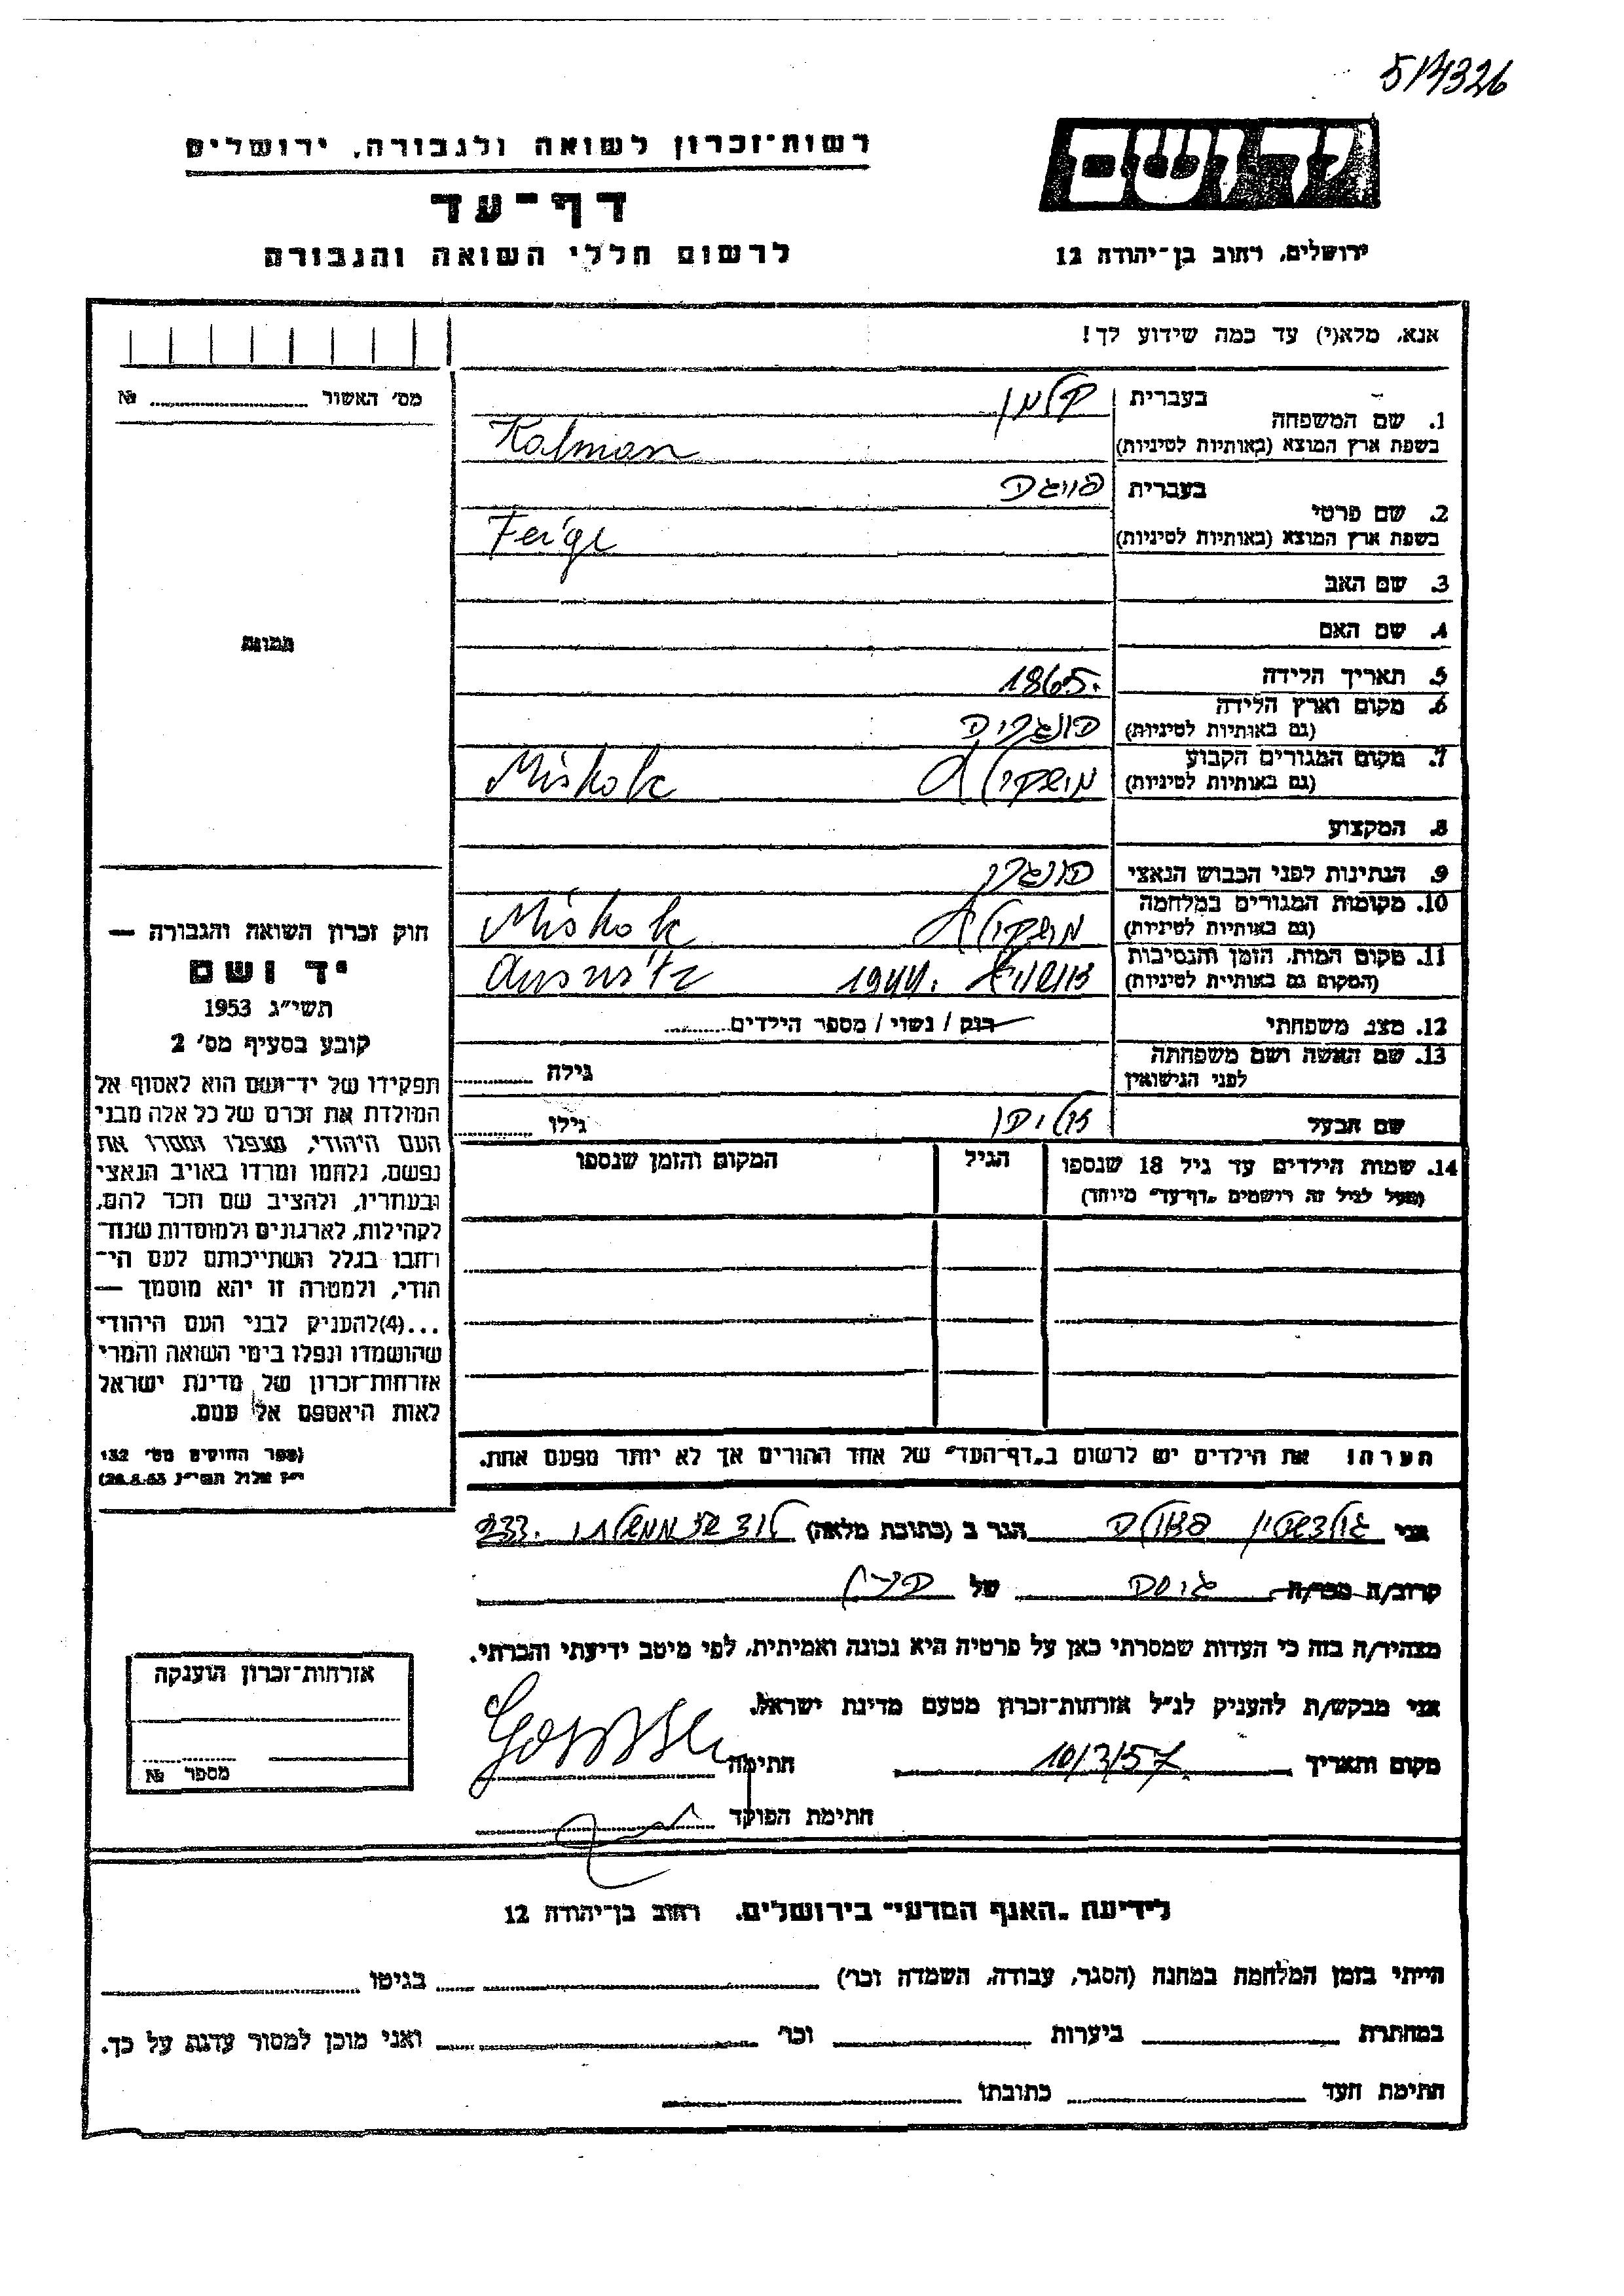 514326
רשות־זכרון לשואה ולגבורה, ירושלים
יד ושם
דף־עד
לרשום חללי השואה והגבורה
ירושלים, רחוב בן־יהודה 12
אנא, מלא(י) עד כמה שידוע לך!
מס' האשור № 
1. שם המשפחה בעברית קלמן
בשפת ארץ המוצא (באותיות לטיניות) Kalman
2. שם פרטי בעברית פייגה
בשפת ארץ המוצא (באותיות לטיניות) Feige
3. שם האב
4. שם האם
תמונה
5. תאריך הלידה 1865.
6. מקום וארץ הלידה הונגריה
(גם באותיות לטיניות)
7. מקום המגורים הקבוע
(גם באותיות לטיניות) Miskolc
8. המקצוע
9. הנתינות לפני הכבוש הנאצי הונגרי
10. מקומות המגורים במלחמה
(גם באותיות לטיניות)
11. מקום המות, הזמן והנסיבות 1944.
(המקום גם באותיות לטיניות)
12. מצב משפחתי רוק / נשוי / מספר הילדים
13. שם האשה ושם משפחתה גילה
לפני הנישואין
שם הבעל גילו
14. שמות הילדים עד גיל 18 שנספו הגיל המקום והזמן שנספו
(מעל לגיל זה רושמים „דף־עד" מיוחד)
הערה: את הילדים יש לרשום ב„דף־העד" של אחד ההורים אך לא יותר מפעם אחת.
חוק זכרון השואה והגבורה —
יד ושם
תשי"ג 1953
קובע בסעיף מס' 2
תפקידו של יד־ושם הוא לאסוף אל
המולדת את זכרם של כל אלה מבני
העם היהודי, שנפלו ומסרו את
נפשם, נלחמו ומרדו באויב הנאצי
ובעוזריו, ולהציב שם וזכר להם,
לקהילות, לארגונים ולמוסדות שנח־
רבו בגלל השתייכותם לעם הי־
הודי, ולמטרה זו יהא מוסמך —
...(4)להעניק לבני העם היהודי
שהושמדו ונפלו בימי השואה והמרי
אזרחות־זכרון של מדינת ישראל
לאות היאספם אל עמם.
(ספר החוקים מס' 132
י"ז אלול תשי"ג 28.8.53)
אני גולדשטיין הגר ב (כתובת מלאה)
קרוב/ה מכר/ה גיסה של
מצהיר/ה בזה כי העדות שמסרתי כאן על פרטיה היא נכונה ואמיתית, לפי מיטב ידיעתי והכרתי.
אני מבקש/ת להעניק לנ"ל אזרחות־זכרון מטעם מדינת ישראל.
מקום ותאריך 10/3/57 חתימה
חתימת הפוקד
אזרחות־זכרון הוענקה
מספר №
לידיעת „האגף המדעי" בירושלים, רחוב בן־יהודה 12
הייתי בזמן המלחמה במחנה (הסגר, עבודה, השמדה וכו') בגיטו
במחתרת ביערות וכו' ואני מוכן למסור עדות על כך.
חתימת העד כתובתו